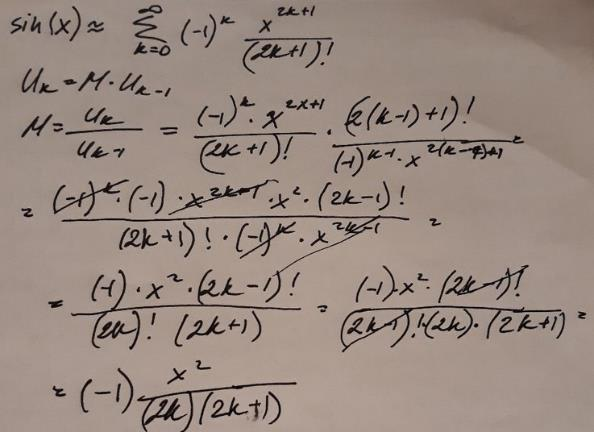 sin(x) ≈ ∞ Σ k=0 (-1)^k x^{2k+1} / (2k+1)!
U_k = M · U_{k-1}
M = U_k / U_{k-1} = (-1)^k · x^{2x+1} / (2k+1)! · (2(k-1)+1)! / (-1)^{k-1} · x^{2(k-1)+1} =
= (-1)^k · (-1) · x^{2k-1} · x^2 · (2k-1)! / (2k+1)! · (-1)^k · x^{2k-1} =
= (-1) · x^2 · (2k-1)! / (2k)! (2k+1) = (-1) · x^2 · (2k-1)! / (2k-1)! · (2k) · (2k+1) =
= (-1) x^2 / (2k)(2k+1)